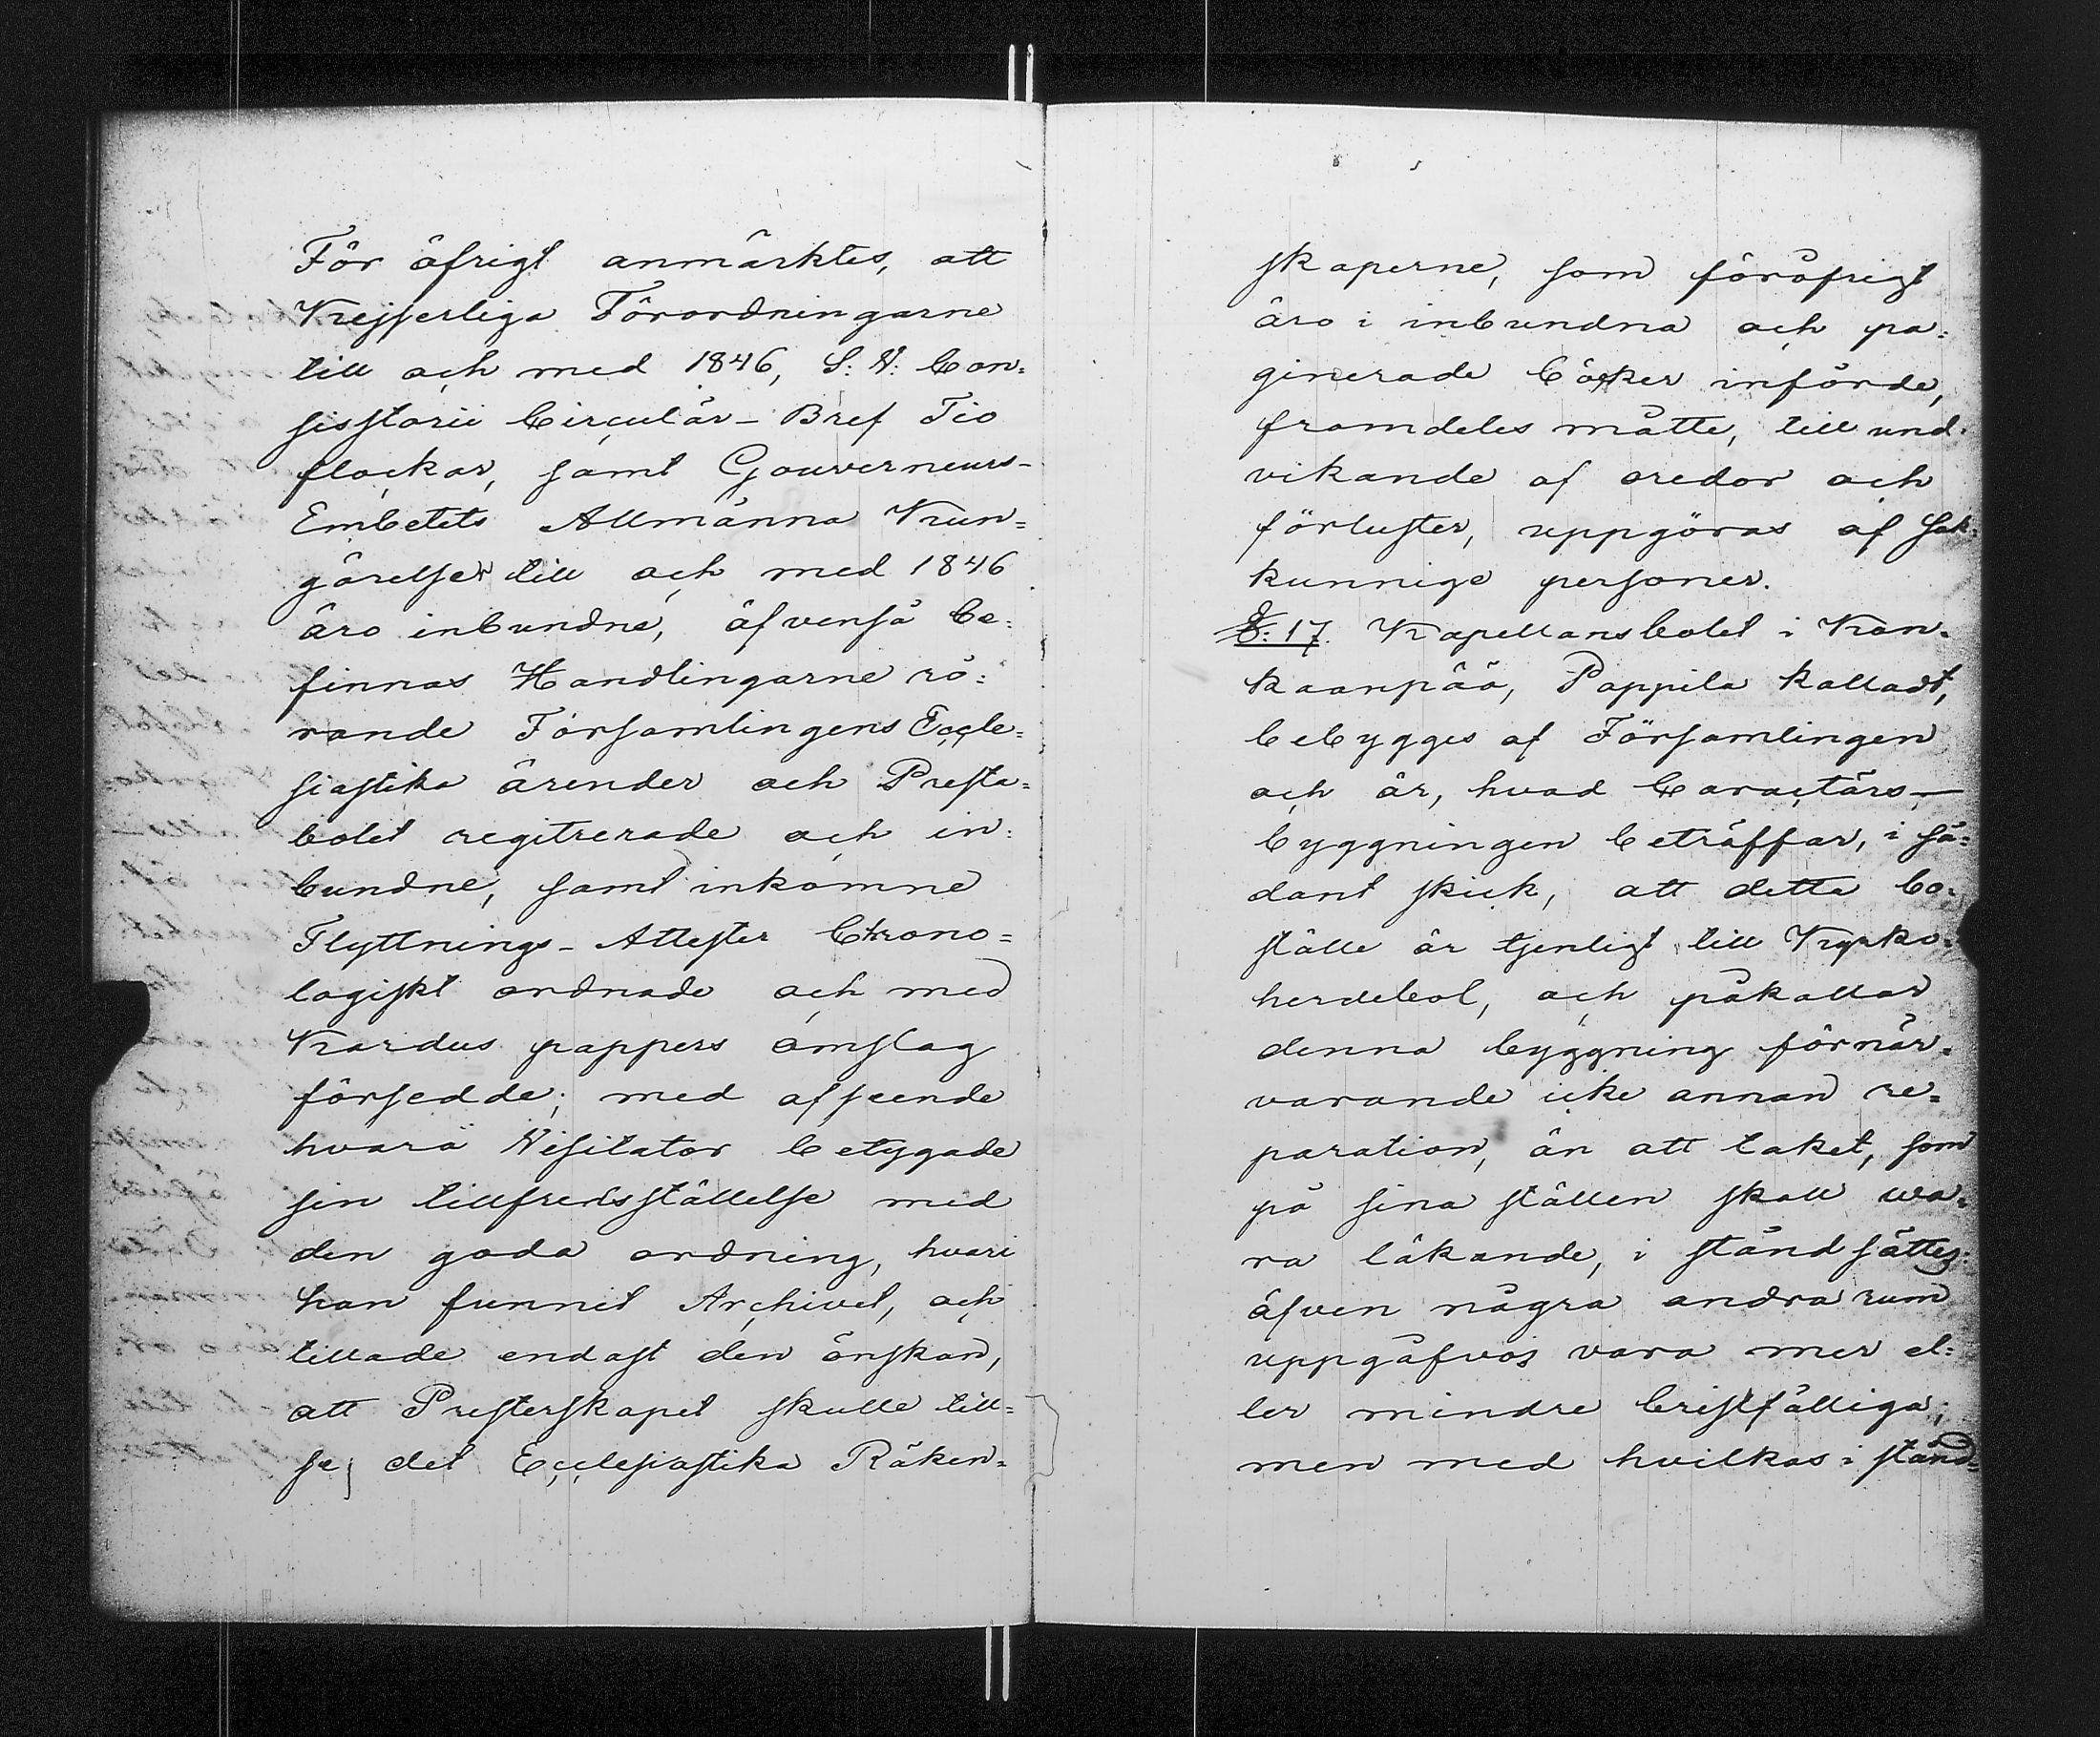 För öfrigt anmärktes, att
Kejserliga Förordningarne
till och med 1846, S: V: Con=
sistorii Circulär-Bref Tio
flockar, samt Gouverneurs-
Embetets Allmänna Kun=
görelser till och med 1846
äro inbundne, äfvenså be=
finnas Handlingarne rö=
rande Församlingens Eccle=
siastika ärender och Presta=
bolet regitrerade och in=
bundne, samt inkomne
Flyttnings-Attester Chrono=
logiskt ordnade och med
Kardus pappers omslag
försedde; med afseende
hvarå Visitator betygade
sin tillfredsställelse med
den goda ordning, hvari
han funnit Archivet, och
tillade endast den önskan,
att Presterskapet skulle till=
se, det Ecclesiastika Räken=
skaperne, som föröfrigt
äro i inbundna och pa=
ginerade böcker införde,
framdeles måtte, till und=
vikande af oredor och
förluster, uppgöras af sak=
kunnige personer.
§: 17. Kapellansbolet i Kan=
kaanpää, Pappila kalladt,
bebygges af Församlingen
och är, hvad Caractärs-
byggningen beträffar, i så=
dant skick, att detta bo=
ställe är tjenligt till Kyrko=
herdebol, och påkallar
denna byggning förnär=
varande icke annan re=
paration, än att taket, som
på sina ställen skall wa=
ra läkande, i stånd sättes:
äfven några andra rum
uppgåfvos vara mer el=
ler mindre bristfälliga;
men med hvilkas i stånd=